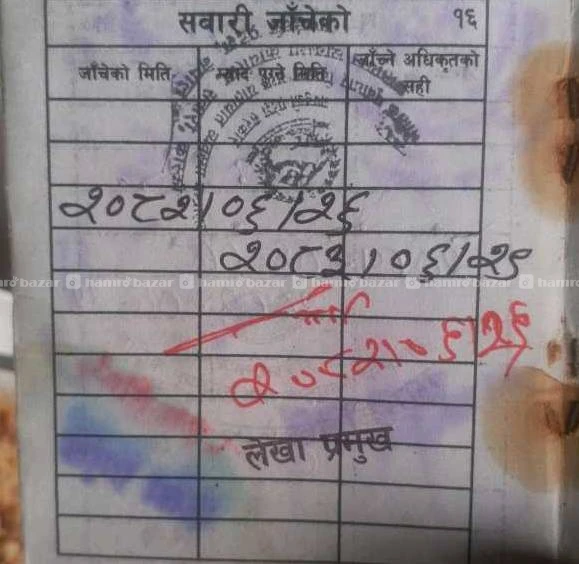 सवारी जाँचेको १६
जाँचेको मिति
म्याद पुग्ने मिति
जाँच्ने अधिकृतको सही
२०८२।०६।२६
२०८३।०६।२५
hamrobazar hamrobazar hamrobazar hamrobazar hamrobazar
२०८२।०६।२६
लेखा प्रमुख